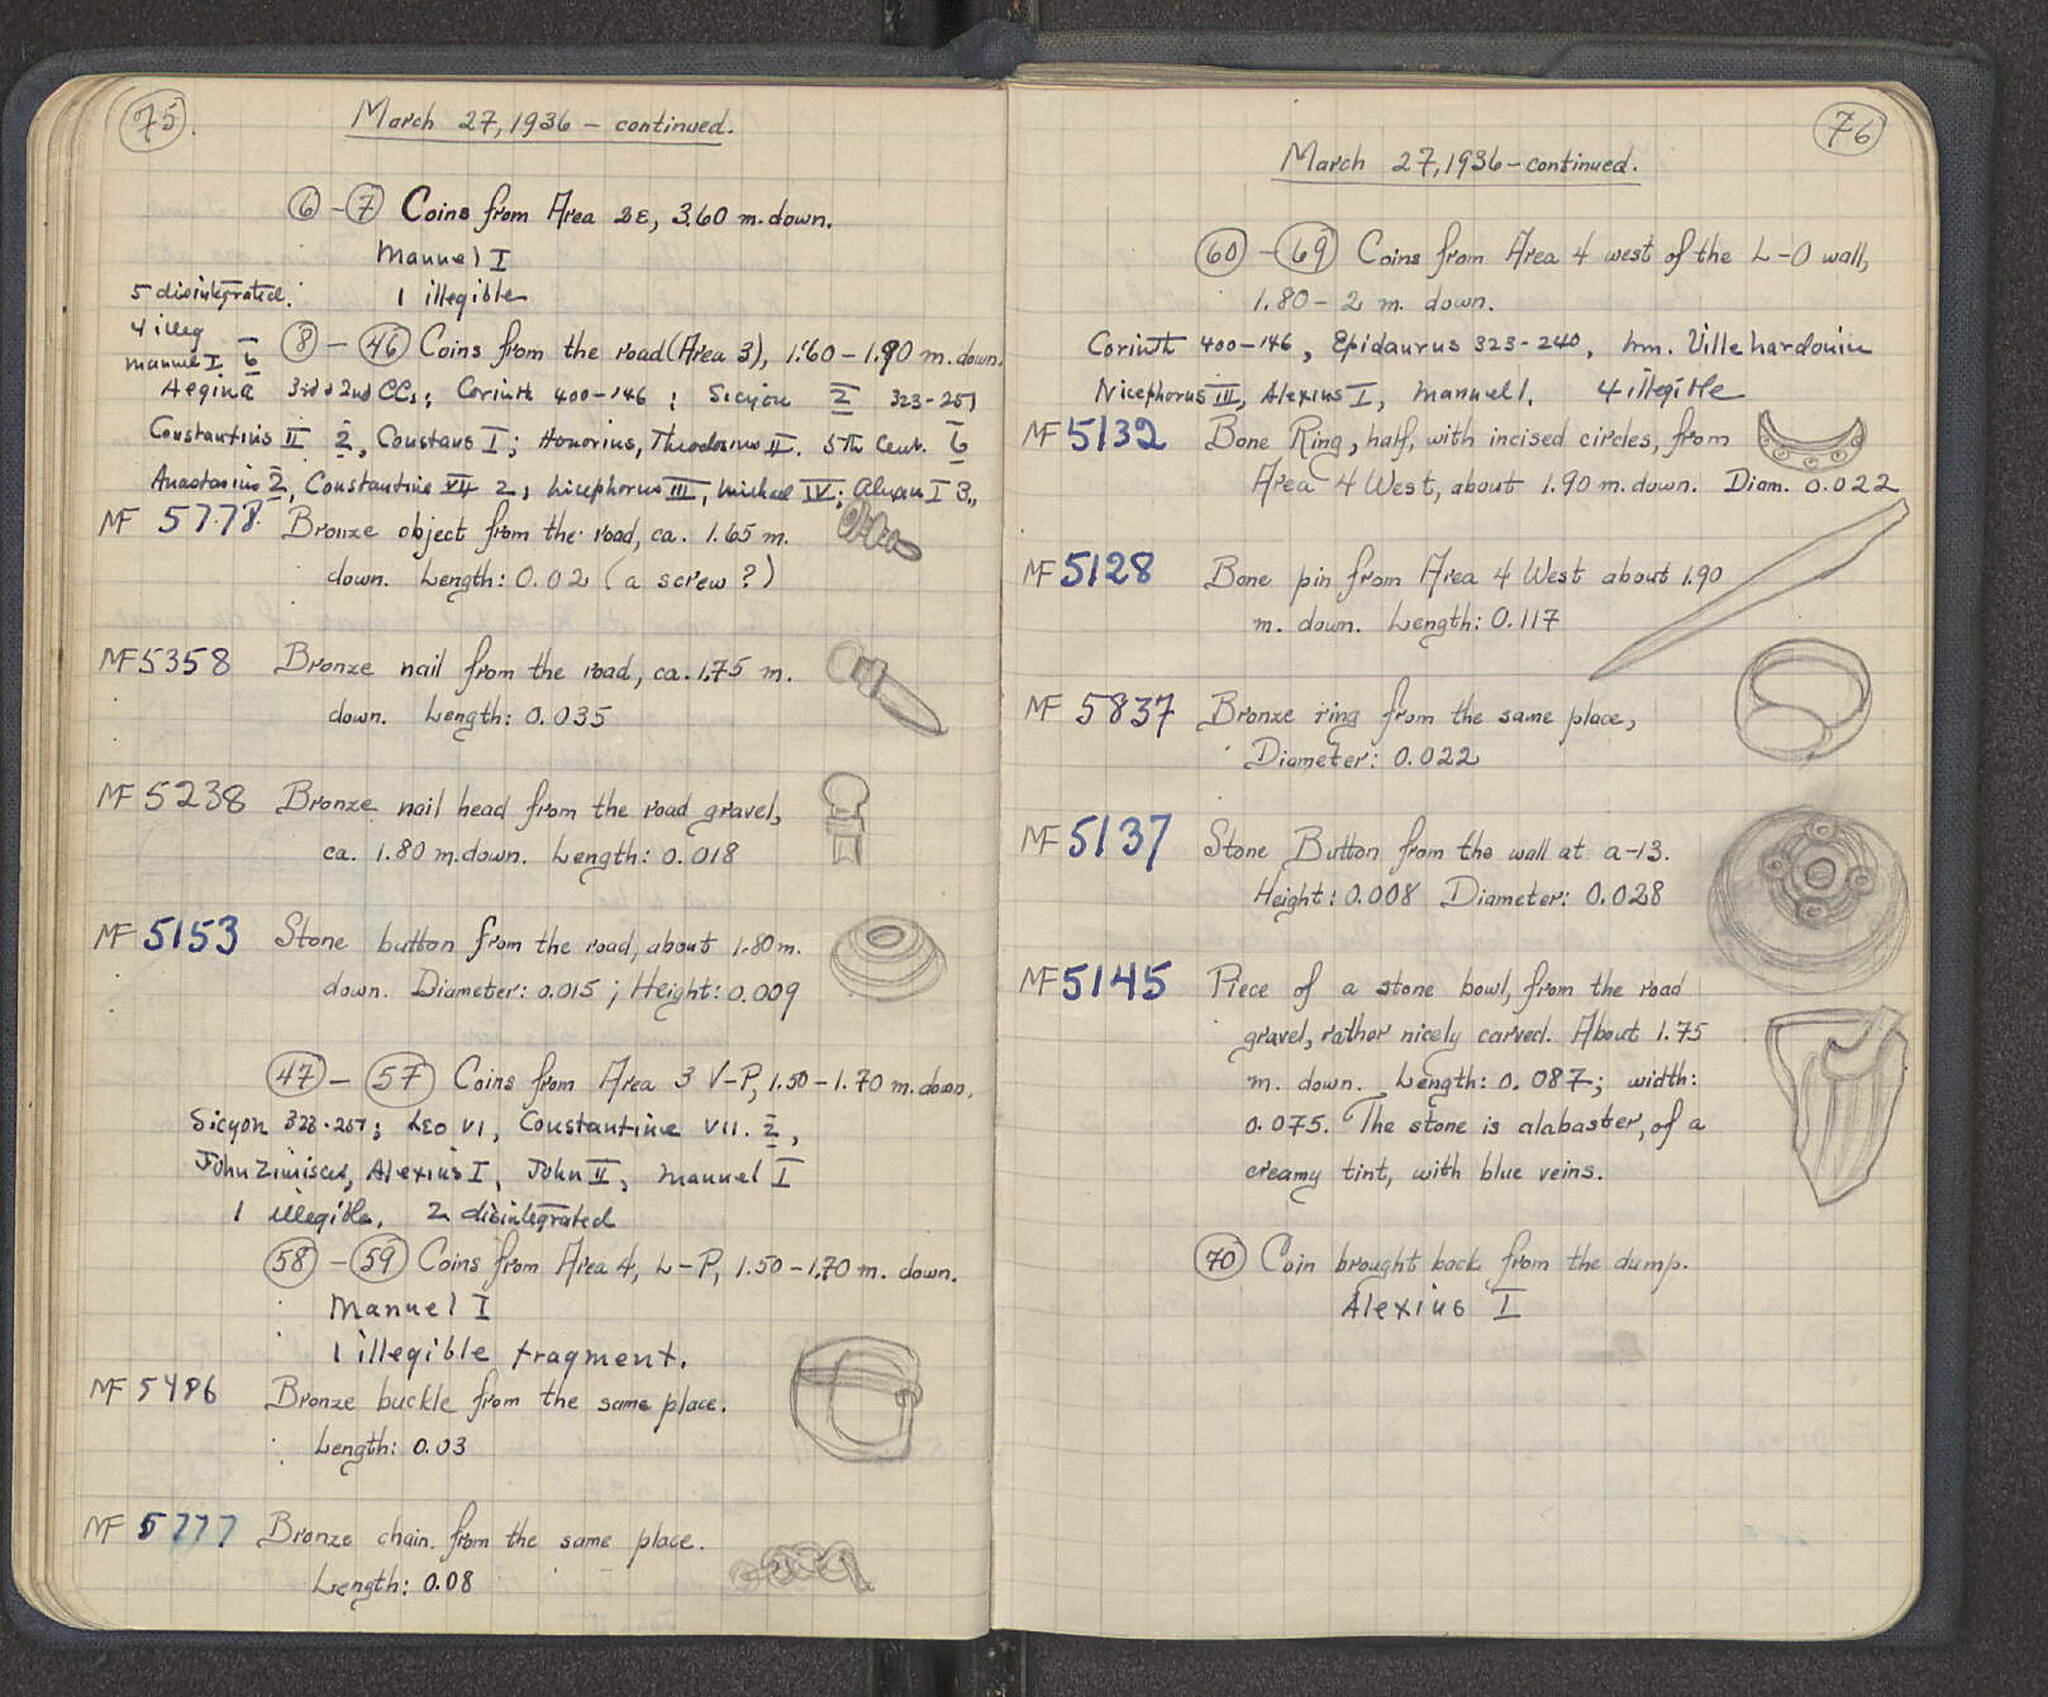 75.
March 27, 1936 – continued.
6 – 7 Coins from Area 2E, 3.60 m. down.
Manuel I
1 illegible
5 disintegrated.
4 illeg
Manuel I 6
8 – 46 Coins from the road (Area 3), 1.60 – 1.90 m. down.
Aegina 3rd & 2nd CCs; Corinth 400–146; Sicyon 2 323-251
Constantius II 2, Constans I; Honorius, Theodosius II. 5th Cent. 6
Anastasius 2, Constantine VII 2; Nicephorus III, Michael IV; Alexius I 3,
MF 5778 Bronze object from the road, ca. 1.65 m.
down. Length: 0.02 (a screw?)
MF 5358 Bronze nail from the road, ca. 1.75 m.
down. Length: 0.035
MF 5238 Bronze nail head from the road gravel,
ca. 1.80 m. down. Length: 0.018
MF 5153 Stone button from the road, about 1.80 m.
down. Diameter: 0.015; Height: 0.009
47 – 57 Coins from Area 3 V-P, 1.50 – 1.70 m. down.
Sicyon 323-251; Leo VI, Constantine VII. 2,
John Zimisces, Alexius I, John II, Manuel I
1 illegible, 2 disintegrated
58 – 59 Coins from Area 4, L-P, 1.50 – 1.70 m. down.
Manuel I
1 illegible fragment.
MF 5486 Bronze buckle from the same place.
Length: 0.03
MF 5777 Bronze chain from the same place.
Length: 0.08
76
March 27, 1936 – continued.
60 – 69 Coins from Area 4 west of the L-O wall,
1.80 – 2 m. down.
Corinth 400–146, Epidaurus 323-240, Wm. Villehardouin
Nicephorus III, Alexius I, Manuel I. 4 illegible
MF 5132 Bone Ring, half, with incised circles, from
Area 4 West, about 1.90 m. down. Diam. 0.022
MF 5128 Bone pin from Area 4 West about 1.90
m. down. Length: 0.117
MF 5837 Bronze ring from the same place,
Diameter: 0.022
MF 5137 Stone Button from the wall at a-13.
Height: 0.008 Diameter: 0.028
MF 5145 Piece of a stone bowl, from the road
gravel, rather nicely carved. About 1.75
m. down. Length: 0.087; width:
0.075. The stone is alabaster, of a
creamy tint, with blue veins.
70 Coin brought back from the dump.
Alexius I